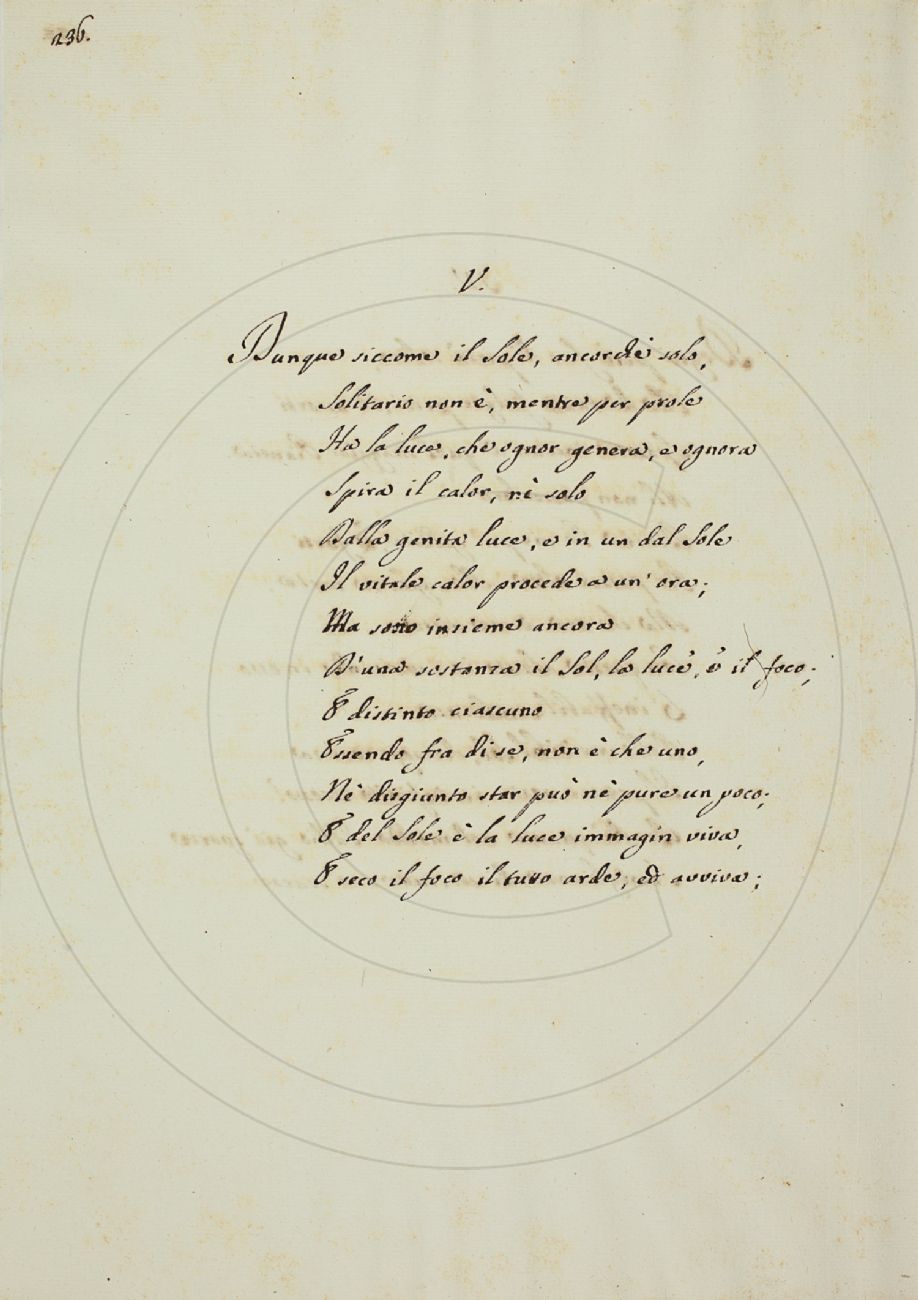 236.
V.
Dunque siccome il Sole, ancorchè solo,
Solitario non è, mentre per prole
Ha la luce, che ognor genera, e ognora
Spira il calor, nè solo
Dalla genita luce, e in un dal Sole
Il vitale calor procede a un' ora;
Ma sono insieme ancora
D'una sostanza il Sol, la luce, e il foco;
E distinto ciascuno
Essendo fra di se, non è che uno,
Nè disgiunto star può nè pure un poco;
E del Sole è la luce immagin viva,
E seco il foco il tutto arde, ed avviva;